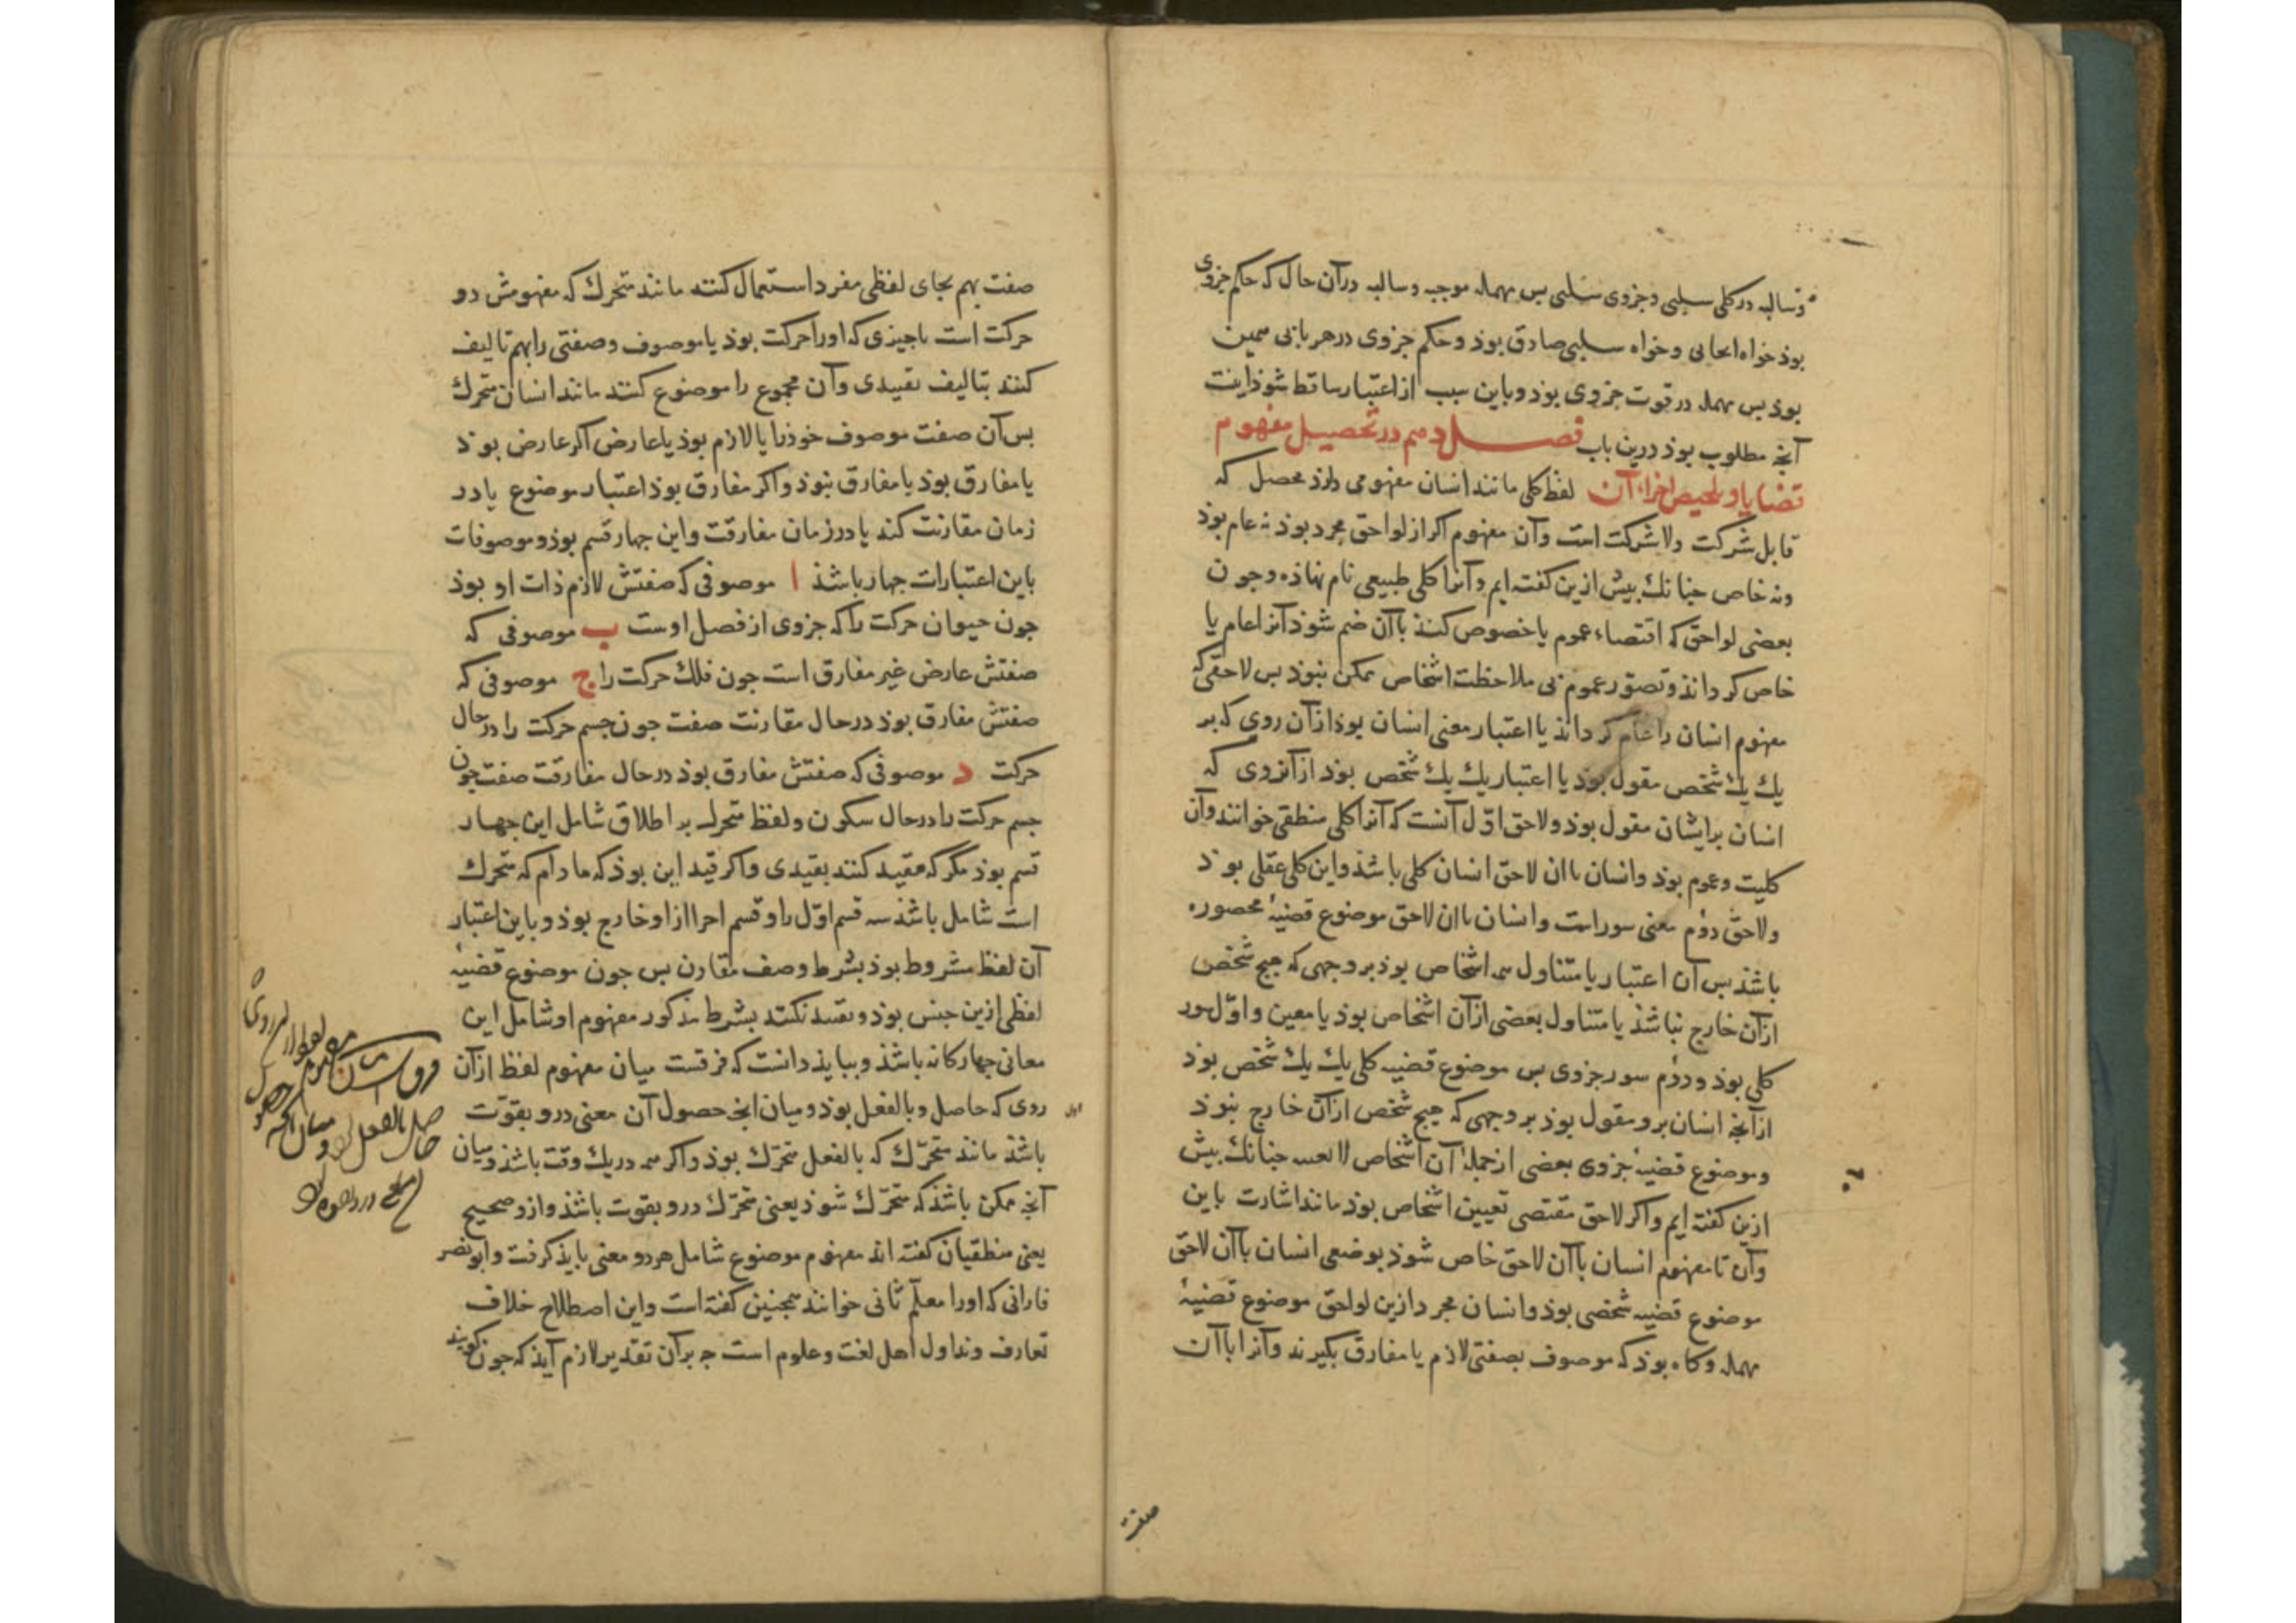 وسالبه در کلی سلبی و جزوی سلبی بس مهمله موجبه و سالبه در آن حال که حکم جزوی
بوذ خواه ایجابی و خواه سلبی صادق بوذ و حکم جزوی در هر بابی همین
بوذ بس مهمله در قوت جزوی بوذ و باین سبب از اعتبار ساقط شوذ اینست
آنجه مطلوب بوذ درین باب فصل دهم در تحصیل مفهوم
قضایا و تلخیص اجزاء آن لفظ کلی مانند انسان مفهومی دارذ محصل که
قابل شرکت ولا شرکت است وآن مفهوم اکر از لواحق مجرد بوذ نه عام بوذ
ونه خاص جنانك بیش ازین کفته ایم و آنرا کلی طبیعی نام نهاذه و جون
بعضی لواحق که اقتضاء عموم یا خصوص کند باآن ضم شوذ آنرا عام یا
خاص کرداند و تصور عموم بی ملاحظت اشخاص ممکن نبوذ بس لاحقی که
مفهوم انسان را عام کرداند یا اعتبار معنی انسان بوذ ازآن روی که بر
یك یك شخص مقول بوذ یا اعتبار یك یك شخص بوذ ازآنروی که
انسان برایشان مقول بوذ ولاحق اوّل آنست که آنرا کلی منطقی خوانند وآن
کلیت وعموم بوذ وانسان باان لاحق انسان کلی باشذ واین کلی عقلی بوذ
ولاحق دوم معنی سور است وانسان باان لاحق موضوع قضیهٔ محصوره
باشذ بس آن اعتبار یا متناول همه اشخاص بوذ بر وجهی که هیج شخص
ازآن خارج نباشذ یا متناول بعضی ازآن اشخاص بوذ یا معین واوّل سور
کلی بوذ ودوم سور جزوی بس موضوع قضیه کلی یك یك شخص بوذ
ازآنجه انسان برو مقول بوذ بر وجهی که هیج شخص ازآن خارج نبوذ
وموضوع قضیهٔ جزوی بعضی از جملهٔ آن اشخاص لا بعینه جنانك بیش
ازین کفته ایم واکر لاحق مقتضی تعیین اشخاص بوذ مانند اشارت باین
وآن تا مفهوم انسان باآن لاحق خاص شوذ بوضعی انسان باآن لاحق
موضوع قضیه شخصی بوذ وانسان مجرد ازین لواحق موضوع قضیهٔ
مهمله وکاه بوذ که موصوف بصفتی لازم یا مفارق بکیرند وآنرا باآن
صفت
صفت بهم بجای لفظی مفرد استعمال کنند مانند متحرك که مفهومش دو
حرکت است باجیزی که اورا حرکت بوذ یا موصوف وصفتی را بهم تالیف
کنند بتالیف تقییدی وآن مجموع را موضوع کنند مانند انسان متحرك
بس آن صفت موصوف خوذ را یا لازم بوذ یا عارض اکر عارض بوذ
یا مفارق بوذ یا مفارق نبوذ واکر مفارق بوذ اعتبار موضوع یا در
زمان مقارنت کند یا در زمان مفارقت واین جهار قسم بوذ وموصوفات
باین اعتبارات جهار باشذ ا موصوفی که صفتش لازم ذات او بوذ
جون حیوان حرکت را که جزوی از فصل اوست ب موصوفی که
صفتش عارض غیر مفارق است جون فلك حرکت را ج موصوفی که
صفتش مفارق بوذ در حال مقارنت صفت جون جسم حرکت را در حال
حرکت د موصوفی که صفتش مفارق بوذ در حال مفارقت صفت جون
جسم حرکت را در حال سکون ولفظ متحرك بر اطلاق شامل این جهار
قسم بوذ مکر که مقید کنند بقیدی واکر قید این بوذ که ما دام که متحرك
است شامل باشذ سه قسم اوّل را وقسم اخر ازاو خارج بوذ وباین اعتبار
آن لفظ مشروط بوذ بشرط وصف مقارن بس جون موضوع قضیهٔ
لفظی ازین جنس بوذ وتقیید نکنند بشرط مذکور مفهوم او شامل این
معانی جهارکانه باشذ وببایذ دانست که فرقست میان مفهوم لفظ ازآن
روی که حاصل وبالفعل بوذ ومیان انج حصول آن معنی درو بقوّت
باشذ مانند متحرّك که بالفعل متحرّك بوذ واکر همه در یك وقت باشذ ومیان
آنجه ممکن باشذ که متحرّك شوذ یعنی متحرّك درو بقوت باشذ وازو صحیح
یعنی منطقیان کفته اند مفهوم موضوع شامل هر دو معنی بایذ کرفت وابو نصر
فارابی که اورا معلّم ثانی خوانند همجنین کفته است واین اصطلاح خلاف
تعارف وتداول اهل لغت وعلوم است جه برآن تقدیر لازم آیذ که جون کویند
فرقست میان مفهوم لفظ ازآن روی
حاصل بالفعل بود ومیان آنکه حصول